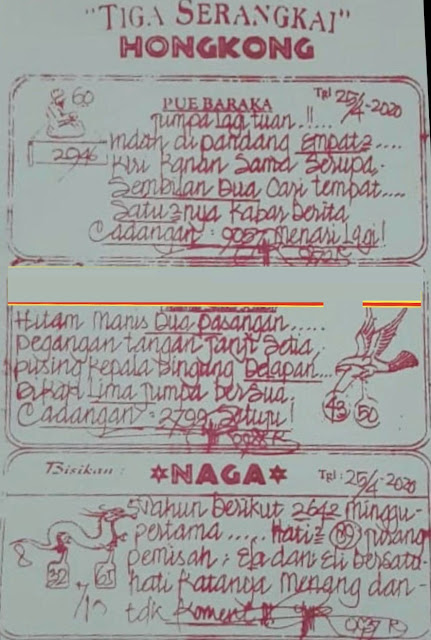 "TIGA SERANGKAI"
HONGKONG
60
2946
PUE BARAKA
Tgl 25/4-2020
Jumpa lagi tuan .!!....
Indah di pandang empat2....
Kiri Kanan Sama Serupa.
Sembilan Dua Cari tempat....
Satu2nya Kabar berita
Cadangan : 9057 Menari Lagi!
Hitam Manis Dua pasangan.....
pegangan tangan Janji Setia
pusing kepala bingung Delapan...
Lima Jumpa bersua.
Cadangan = 2799 Setuju!
43 50
Bisikan :
NAGA
Tgl : 25/4-2020
5 Tahun berikut 2642 minggu
pertama ..... hati2 (89) jurang
pemisah ; Eja dan Eli bersatu
hati Katanya Menang dan-
tdk Koment
8
32
7/10